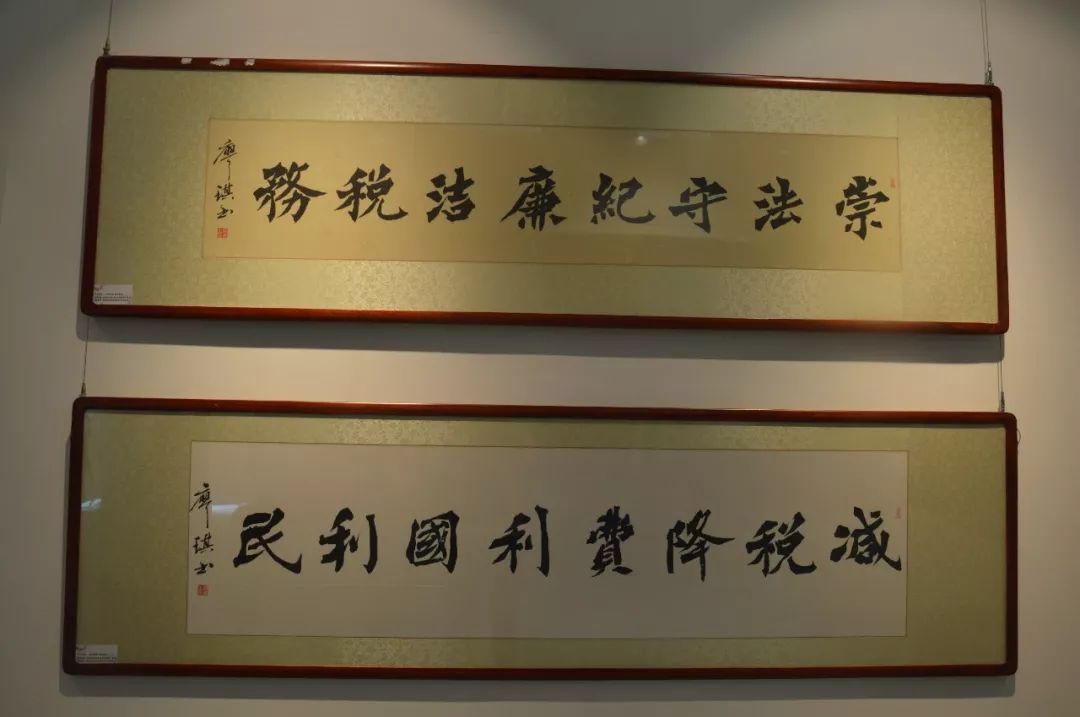 崇法守紀廉洁税務
廖琪书
减税降費利國利民
廖琪书